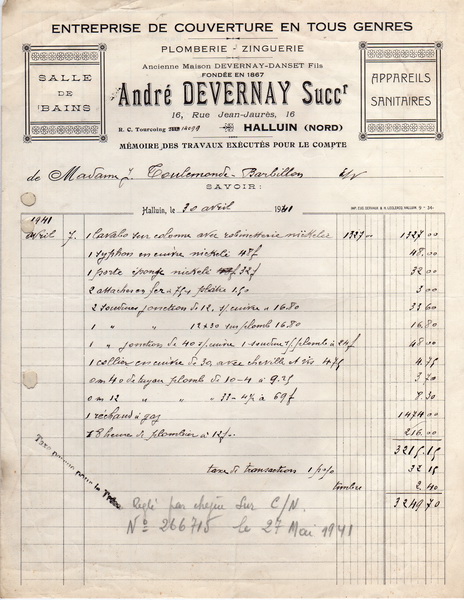 ENTREPRISE DE COUVERTURE EN TOUS GENRES
PLOMBERIE - ZINGUERIE
Ancienne Maison DEVERNAY-DANSET Fils
FONDÉE EN 1867
SALLE DE BAINS
André DEVERNAY Succr
APPAREILS SANITAIRES
16, Rue Jean-Jaurès, 16
R. C. Tourcoing 14099
HALLUIN (NORD)
MÉMOIRE DES TRAVAUX EXÉCUTÉS POUR LE COMPTE
de Madame J. Toulemonde-Barbillon
SAVOIR:
Halluin, le 30 avril 1941
1941
avril 7. 1 lavabo sur colonne avec robinetterie nickelée 1327.00 1327.00
1 syphon en cuivre nickelé 48f 48.00
1 porte éponge nickelé 32f 32.00
2 attaches en fer à 75 + plâtre 1.50 3.00
2 soudures jonction de 12 s/cuivre à 16.80 33.60
1 " " 12x20 sur plomb 16.80 16.80
1 " jonction de 40 s/cuivre 1 soudure s/plomb à 24f 48.00
1 collier en cuivre de 30 avec cheville et vis 4.75 4.75
0m40 de tuyau plomb de 10-4 à 9.25 3.70
0m12 " " " 33-4½ à 69f 8.30
1 réchaud à gaz 1474.00
18 heures de plombier à 12f 216.00
3215.15
taxe de transactions 1 p% 32.15
timbre 2.40
3249.70
Réglé par chèque sur C/N.
N° 266715 le 27 Mai 1941